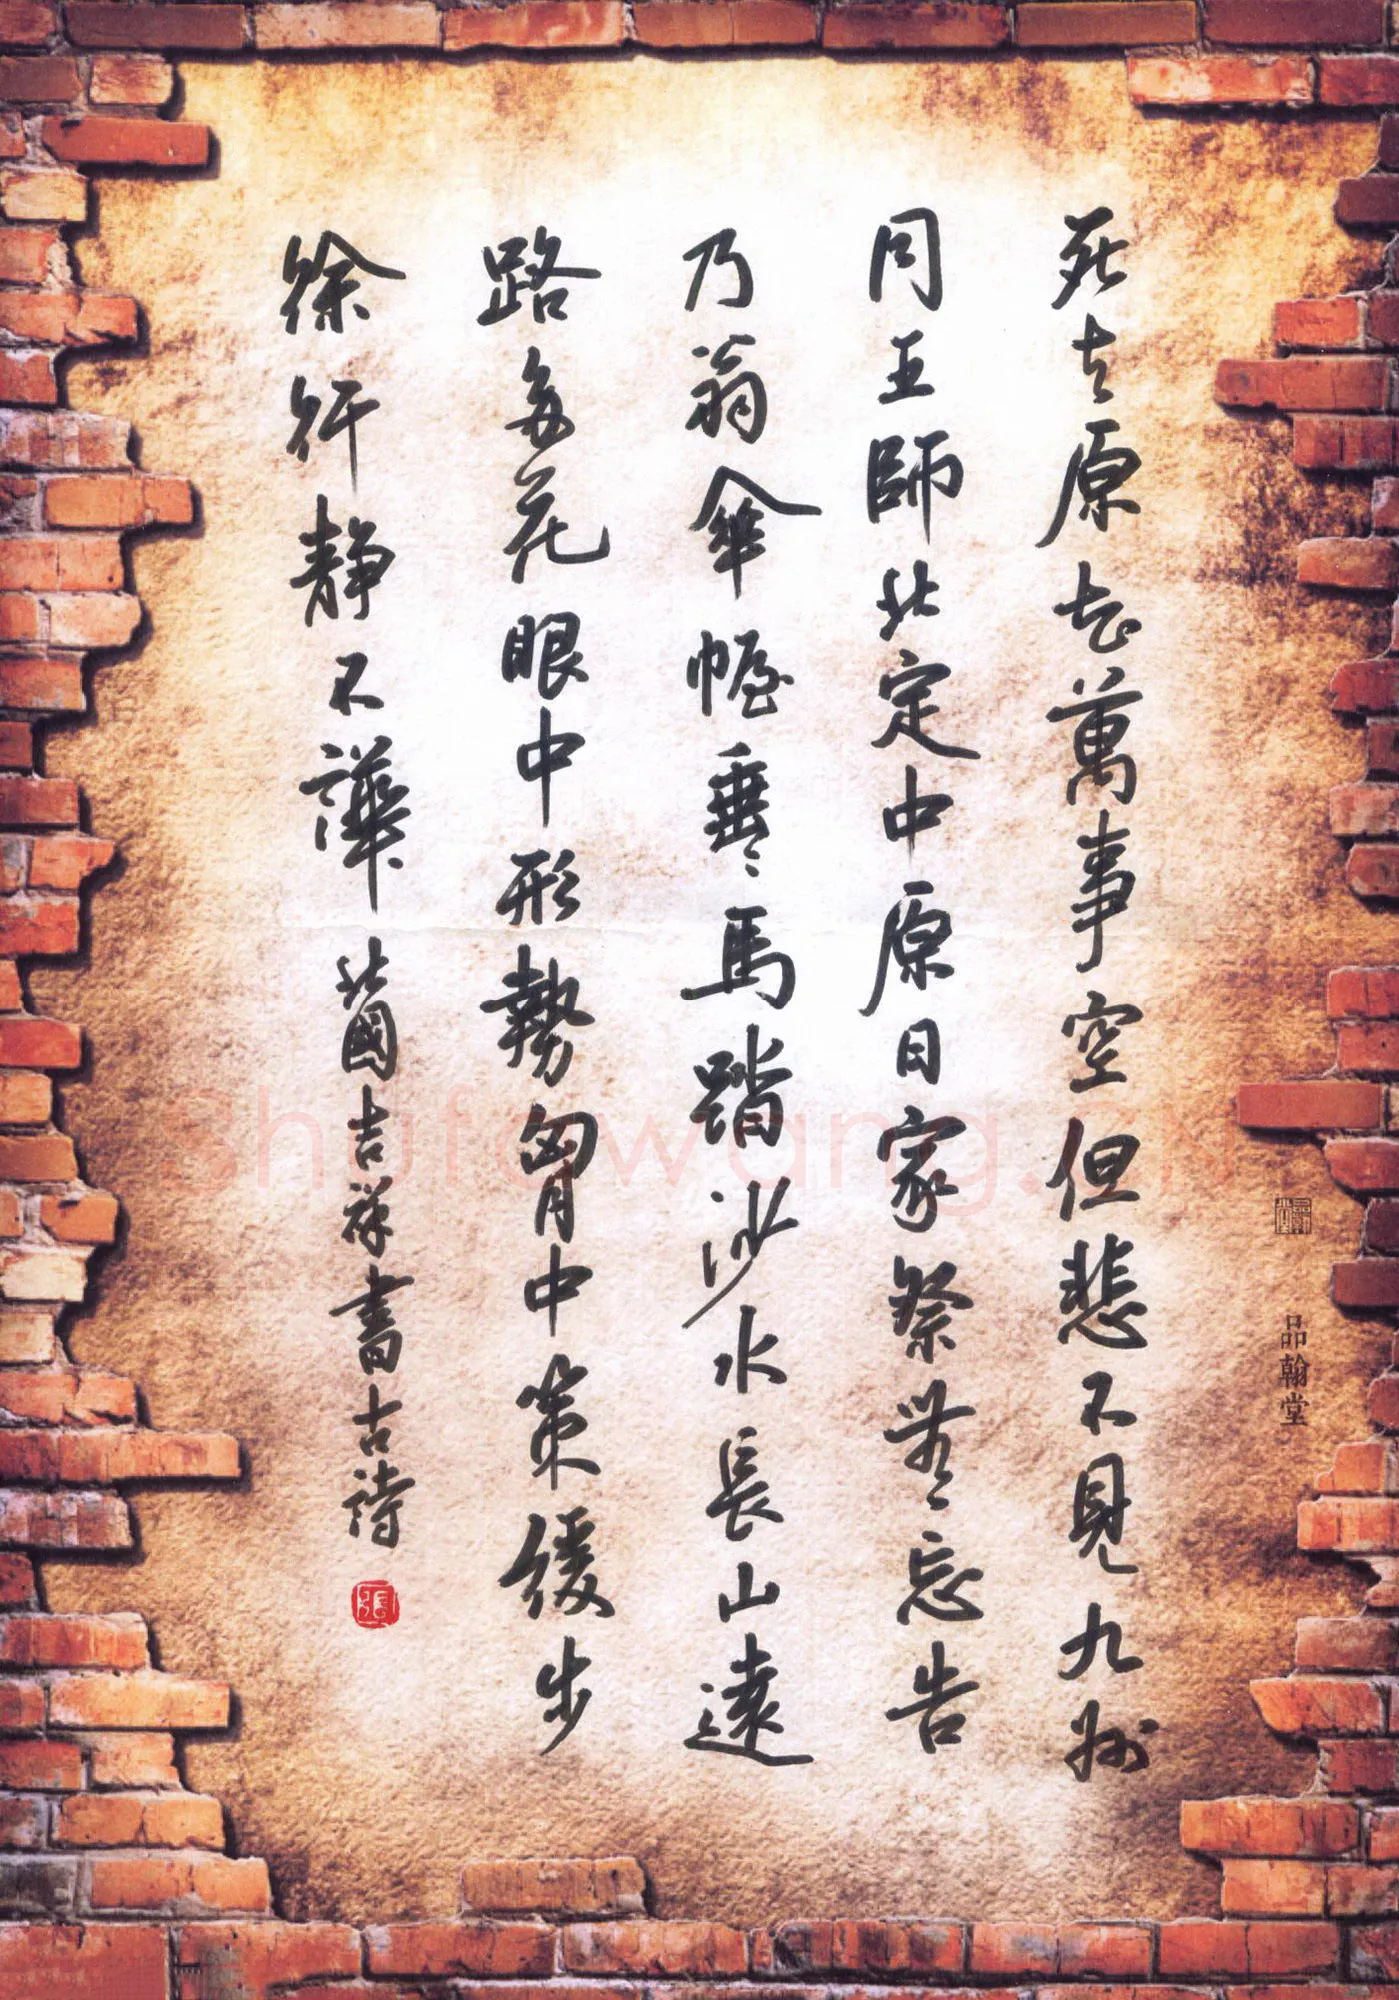 死去原知萬事空但悲不見九州
同王師北定中原日家祭無忘告
乃翁傘幄垂垂馬踏沙水長山遠
路多花眼中形勢胸中策緩步
徐行靜不譁北國吉祥書古詩
張
品翰堂
Shufawang.CN